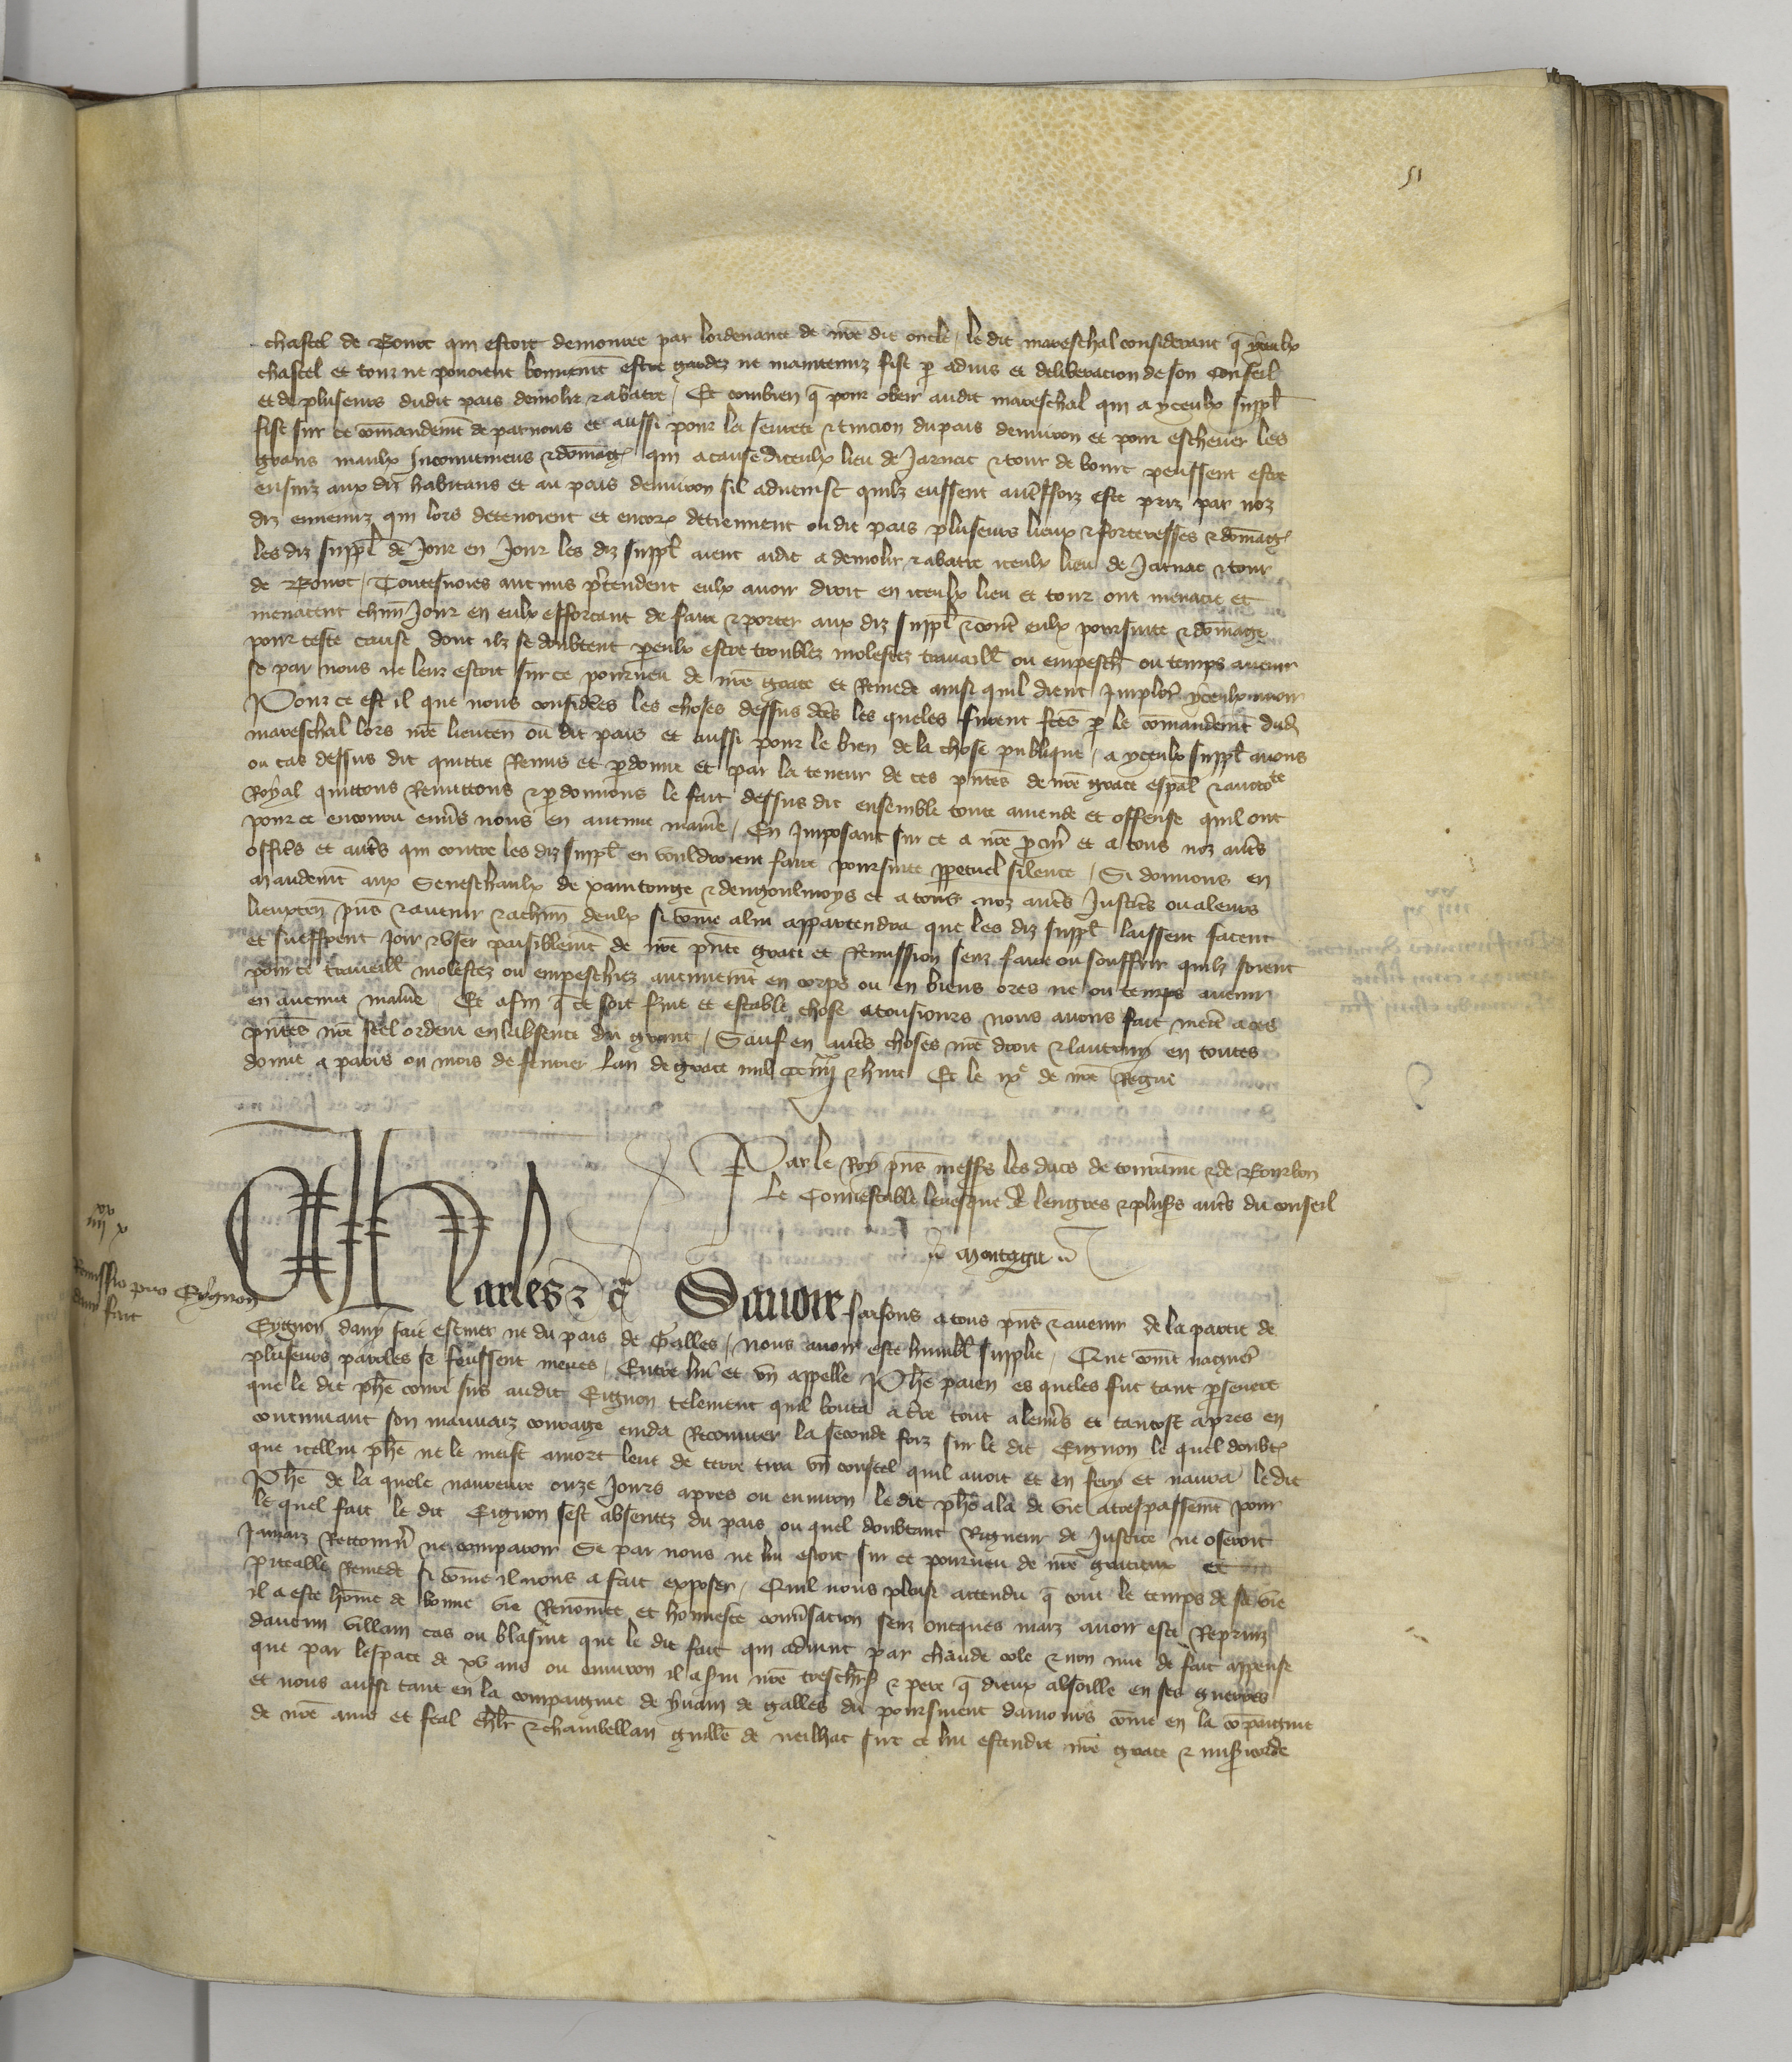 51
chastel de Bourc qui estoit demouree par lordenance de nr̄e dit oncle / le dit mareschal considerant q̄ yceulx
chastel et tour ne pouoient bonnem̄t estre gardez ne maintenuz fist p̄ aduis et deliberacion de son conseil
et de pluseurs dudit pais demolir ⁊ abatre / Et combien q̄ pour obeir audit mareschal qui a yceulx suppl̄
fist sur ce cōmandem̄t de par nous et aussi pour la seurete ⁊ tuicion du pais denuiron et pour escheuer les
grans maulx Inconueniens ⁊ dōmaḡ qui a cause diceulx lieu de Jarnac ⁊ tour de bourc peussent estre
ensuiz aux diz habitans et au pais denuiron sil aduenist quilz eussent aut̄ffoiz este priz par noz
diz ennemiz qui lors detenoient et encor̄ detiennent ou dit pais pluseurs lieux ⁊ forteresses ⁊ dōmaḡ
les diz suppl̄ de Jour en Jour les diz suppl̄ aient aidie a demolir ⁊ abatre iceulx lieu de Jarnac ⁊ tour
de Bourc / Toutesuoies aucuns p̄tendent eulx auoir droit en iceulx lieu et tour ont menacie et
menacent chūn Jour en eulx efforcant de faire ⁊ porter aux diz suppl̄ ⁊ cont̄ eulx poursuite ⁊ dōmage
pour ceste cause dont ilz se doubtent p̄ eulx estre troublez molestez trauaill̄ ou empesch̄ ou temps auenir
se par nous ne leur estoit sur ce pourueu de nr̄e grace et Remede ainsi quil dient Implor̄ yceulx auoir
Pour ce est il que nous consider̄s les choses dessus dc̄es les queles furent fc̄es p̄ le cōmandem̄t dud̄
mareschal lors nr̄e lieuten̄ ou dit pais et aussi pour le bien de la chose publique / a yceulx suppl̄ auons
ou cas dessus dit quittie Remis et p̄donne et par la teneur de ces p̄ntes de nr̄e grace esp̄al ⁊ auctote
Royal quittons Remettons ⁊ p̄donnons le fait dessus dit ensemble toute amende et offense quil ont
pour ce encouru enu̅s nous en aucune manie̅ / En Imposant sur ce a nr̄e p̄cur̄ et a tous noz aut̄s
offic̄s et aut̄s qui contre les diz suppl̄ en vouldroient faire poursuite p̄petuel silence / Si donnons en
mandem̄t aux Seneschaulx de xaintonge ⁊ dengoulmoys et a tous noz aut̄s Justic̄s ou a leurs
lieuxten̄ p̄ns ⁊ auenir ⁊ a chūn deulx si cōme a lui appartendra que les diz suppl̄ laissent facent
et sueffrent Joir ⁊ vser paisiblem̄t de nr̄e p̄nte grace et Remission senz faire ou souffrir quilz soient
pour ce trauaill̄ molestez ou empeschiez aucunem̄t en corps ou en biens ores ne ou temps auenir
en aucune manie̅ Et afin q̄ ce soit ferme et estable chose a tousiours nous auons fait metr̄ a ces
p̄ntes nr̄e seel ordene en labsence du grant / Sauf en aut̄s choses nr̄e droit ⁊ lautruy en toutes
donne a paris ou mois de feurier lan de grace mil ccciiijxx ⁊ huit Et le ixe de nr̄e Regne
Par le Roy p̄ns mess̄s les ducs de touraine ⁊ de Bourbon
Le Connestable leuesque de lengres ⁊ plus̄s aut̄s du conseil
n̄ Montagu n̄
xx
iiij x
Remissio pro Eygnon
dauy fait
Charles ⁊c̄ Sauoir faisons a tous p̄ns ⁊ auenir de la partie de
Eygnon dany fait escuier ne du pais de Galles / nous auoir este humbl̄ supplie / Que cōme naguer̄
pluseurs paroles se feussent meues / Entre lui et vn appelle Ph̄e paien es queles fut tant p̄seuere
que le dit ph̄e couru sus audit Eignon telement quil bouta a t̄re tout a lenu̅s et tantost apres en
continuant son mauuaiz courage cuida Recouurer la seconde foiz sur le dit Eignon le quel doubt̄
que icellui ph̄e ne le meist a mort leue de terre tira vn coustel quil auoit et en fery et naura le dit
Ph̄e de la quele naureure onze Jours apres ou enuiron le dit ph̄e ala de vie a trespassem̄t pour
le quel fait le dit Eignon sest absentez du pais ou quel doubtant Rigueur de Justice ne oseroit
Jamaiz Retourn̄ ne comparoir Se par nous ne lui estoit sur ce pourueu de nr̄e gracieux et
piteable Remede si cōme il nous a fait exposer / Quil nous plaise attendu q̄ tout le temps de sa vie
il a este hōme de bonne vie Renōmee et honneste conu̅sacion senz oncques maiz auoir este Repriz
dauenu villain cas ou blasme que le dit fait qui aduint par chaude cole ⁊ non mie de fait appense
que par lespace de xv ans ou enuiron il a serui nr̄e treschr̄ s̄ ⁊ pere q̄ dieux absoille en ses guerres
et nous aussi tant en la compaignie de yuain de galles du poursiuent damours cōme en la cōpaignie
de nr̄e ame et feal ch̄lr ⁊ chambellan guill̄e de neilhac sur ce lui estendre nr̄e grace ⁊ mis̄icorde